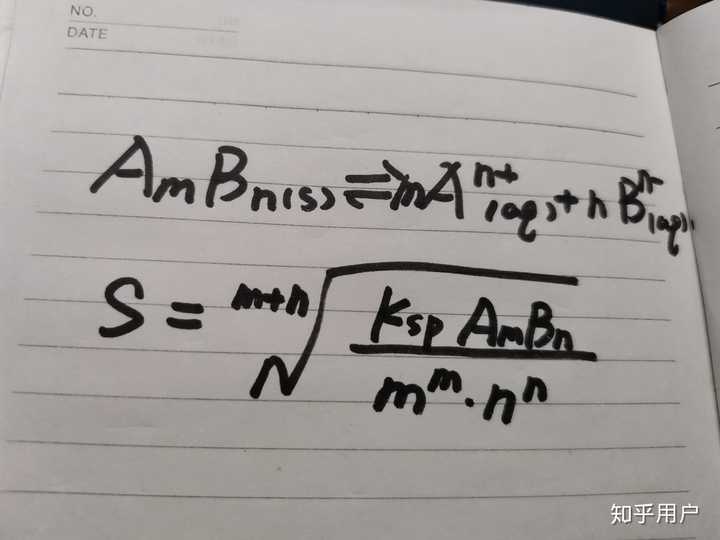 NO.
DATE
AmBn(s) ⇌ mA^n+(aq) + nB^n-(aq)
S = ^m+n√(Ksp AmBn / m^m · n^n)
知乎用户